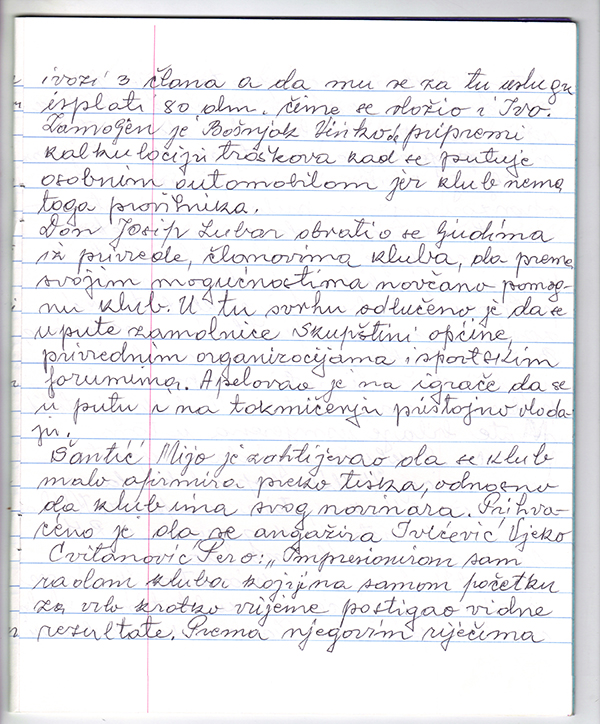 i vozi 3 člana a da mu se za tu uslugu
isplati 80 dlm. čime se složio i Ivo.
Zamoljen je Bošnjak Vinko da pripremi
kalkulaciju troškova kad se putuje
osobnim automobilom jer klub nema
toga pravilnika.
Don Josip Lubar obratio se ljudima
iz privrede, članovima kluba, da prema
svojim mogućnostima novčano pomog-
nu klub. U tu svrhu odlučeno je da se
upute zamolnice Skupštini općine,
privrednim organizacijama i sportskim
forumima. Apelovao je na igrače da se
u putu i na takmičenju pristojno vlada-
ju.
Šantić Mijo je zahtijevao da se klub
malo afirmira preko tiska, odnosno
da klub ima svog novinara. Prihva-
ćeno je da se angažira Ivićević Vjeko
Cvitanović Pero: „Impresioniran sam
radom kluba koji je na samom početku
za vrlo kratko vrijeme postigao vidne
rezultate. Prema njegovim riječima